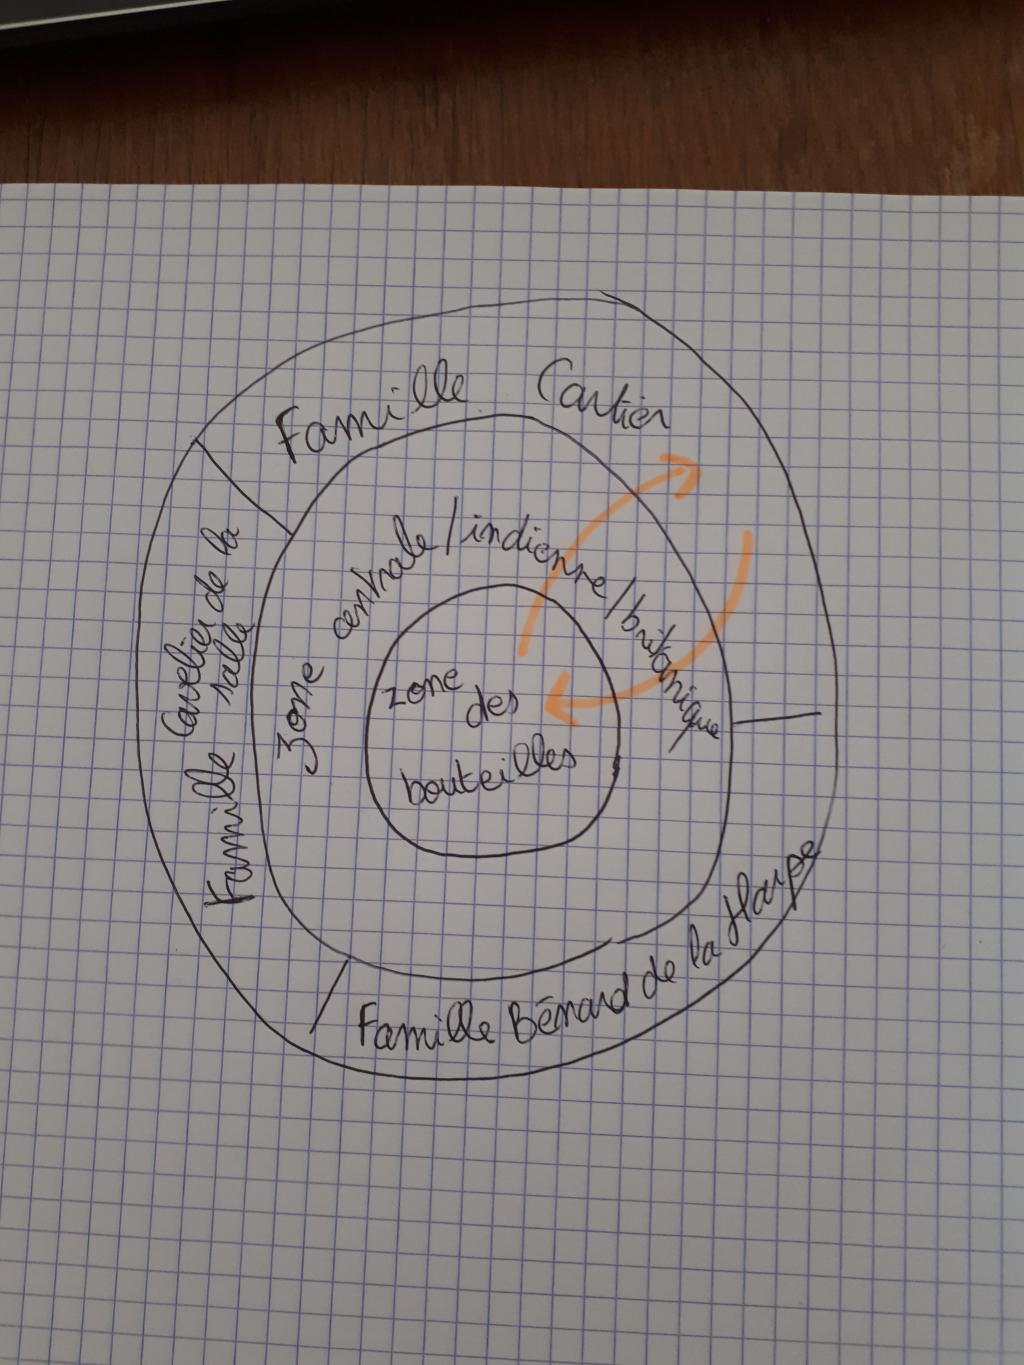 Famille Cartier
Famille Cavelier de la
salle
zone centrale/indienne/britannique
zone
des
bouteilles
Famille Bénard de la Harpe